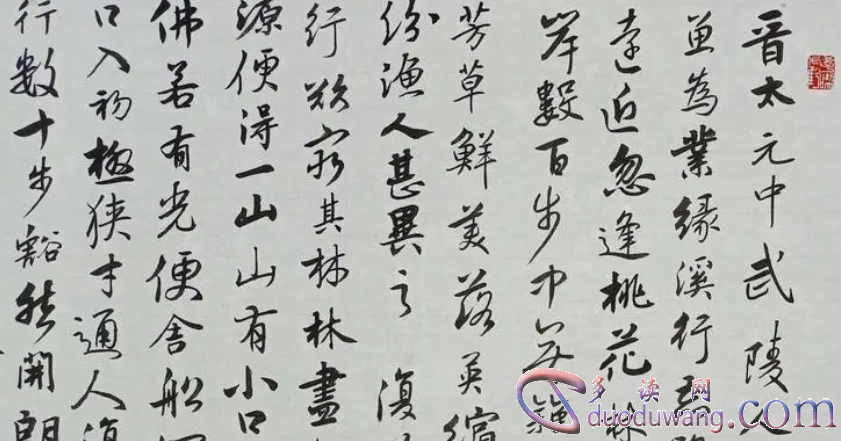 晉太元中武陵人
魚為業緣溪行忘路
遠近忽逢桃花林
岸數百步中無雜
芳草鮮美落英繽
紛漁人甚異之復
行欲窮其林林盡
源便得一山山有小口
佛若有光便舍船
口入初極狹才通人復
行數十步豁然開朗
多读网
duoduwang.com